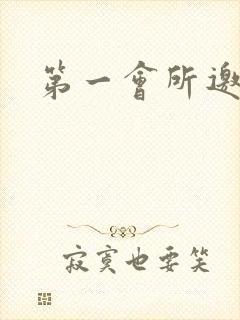 第一會所邀
寂寞也要笑